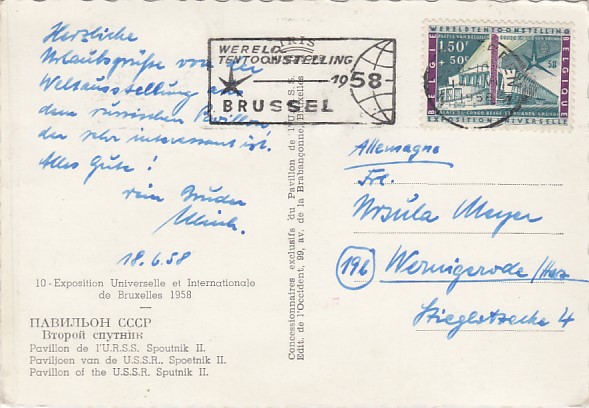 Herzliche
Urlaubsgrüße von der
Weltausstellung aus
dem russischen Pavillon
der sehr interessant ist.
Alles Gute!
Dein Bruder
Ulrich.
18.6.58
10 - Exposition Universelle et Internationale
de Bruxelles 1958
ПАВИЛЬОН СССР
Второй спутник
Pavillon de l'U.R.S.S. Spoutnik II.
Paviljoen van de U.S.S.R.. Spoetnik II.
Pavillon of the U.S.S.R. Sputnik II.
Concessionnaires exclusifs du Pavillon de l'U.R.S.S.
Edit. de l'Occident, 99, av. de la Brabançonne, Bruxelles
WERELD
TENTOONSTELLING
1958
BRUSSEL
WERELDTENTOONSTELLING
BELGIE
BELGIQUE
1.50F
+50c
58
EXPOSITION UNIVERSELLE
Allemagne
Frl.
Ursula Meyer
(19b) Wernigerode/Harz